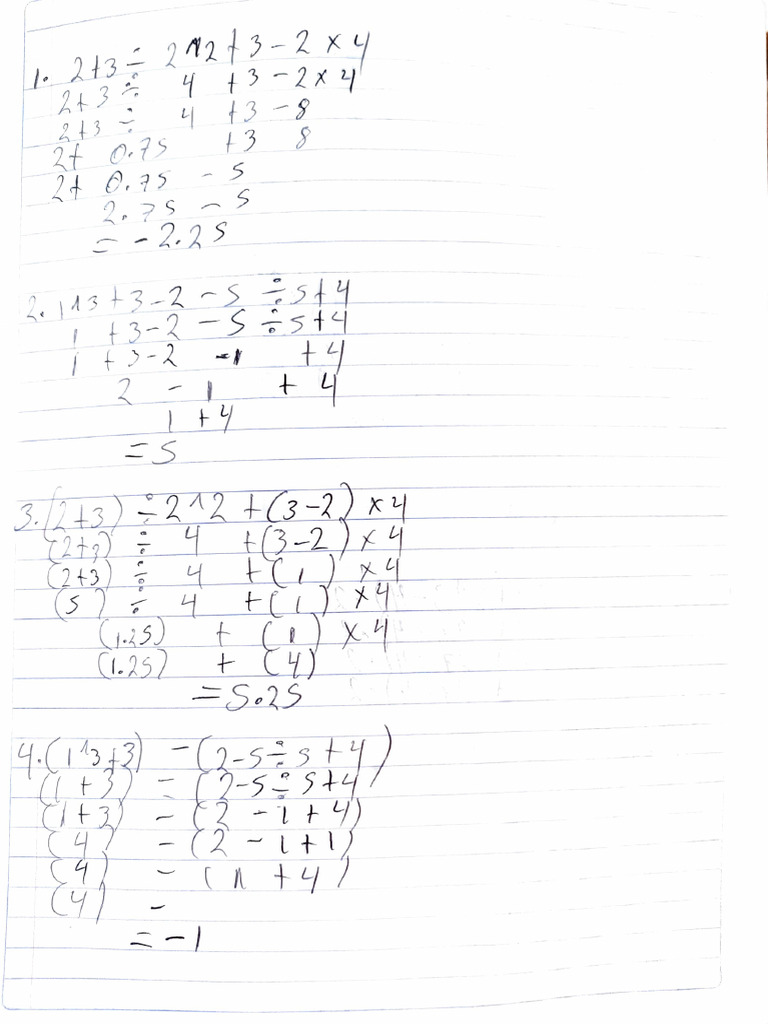 1. 2+3 ÷ 2^2 + 3 - 2 × 4
2+3 ÷ 4 + 3 - 2 × 4
2+3 ÷ 4 + 3 - 8
2+ 0.75 + 3 8
2+ 0.75 - 5
2.75 - 5
= -2.25
2. 1^3 + 3 - 2 - 5 ÷ 5 + 4
1 + 3 - 2 - 5 ÷ 5 + 4
1 + 3 - 2 - 1 + 4
2 - 1 + 4
1 + 4
= 5
3. (2+3) ÷ 2^2 + (3-2) × 4
(2+3) ÷ 4 + (3-2) × 4
(2+3) ÷ 4 + (1) × 4
(5) ÷ 4 + (1) × 4
(1.25) + (1) × 4
(1.25) + (4)
= 5.25
4. (1^3+3) - (2-5÷5+4)
(1+3) = (2-5÷5+4)
(1+3) - (2 - 1 + 4)
(4) - (2 - 1 + 1)
(4) - (1 + 4)
(4) -
= -1